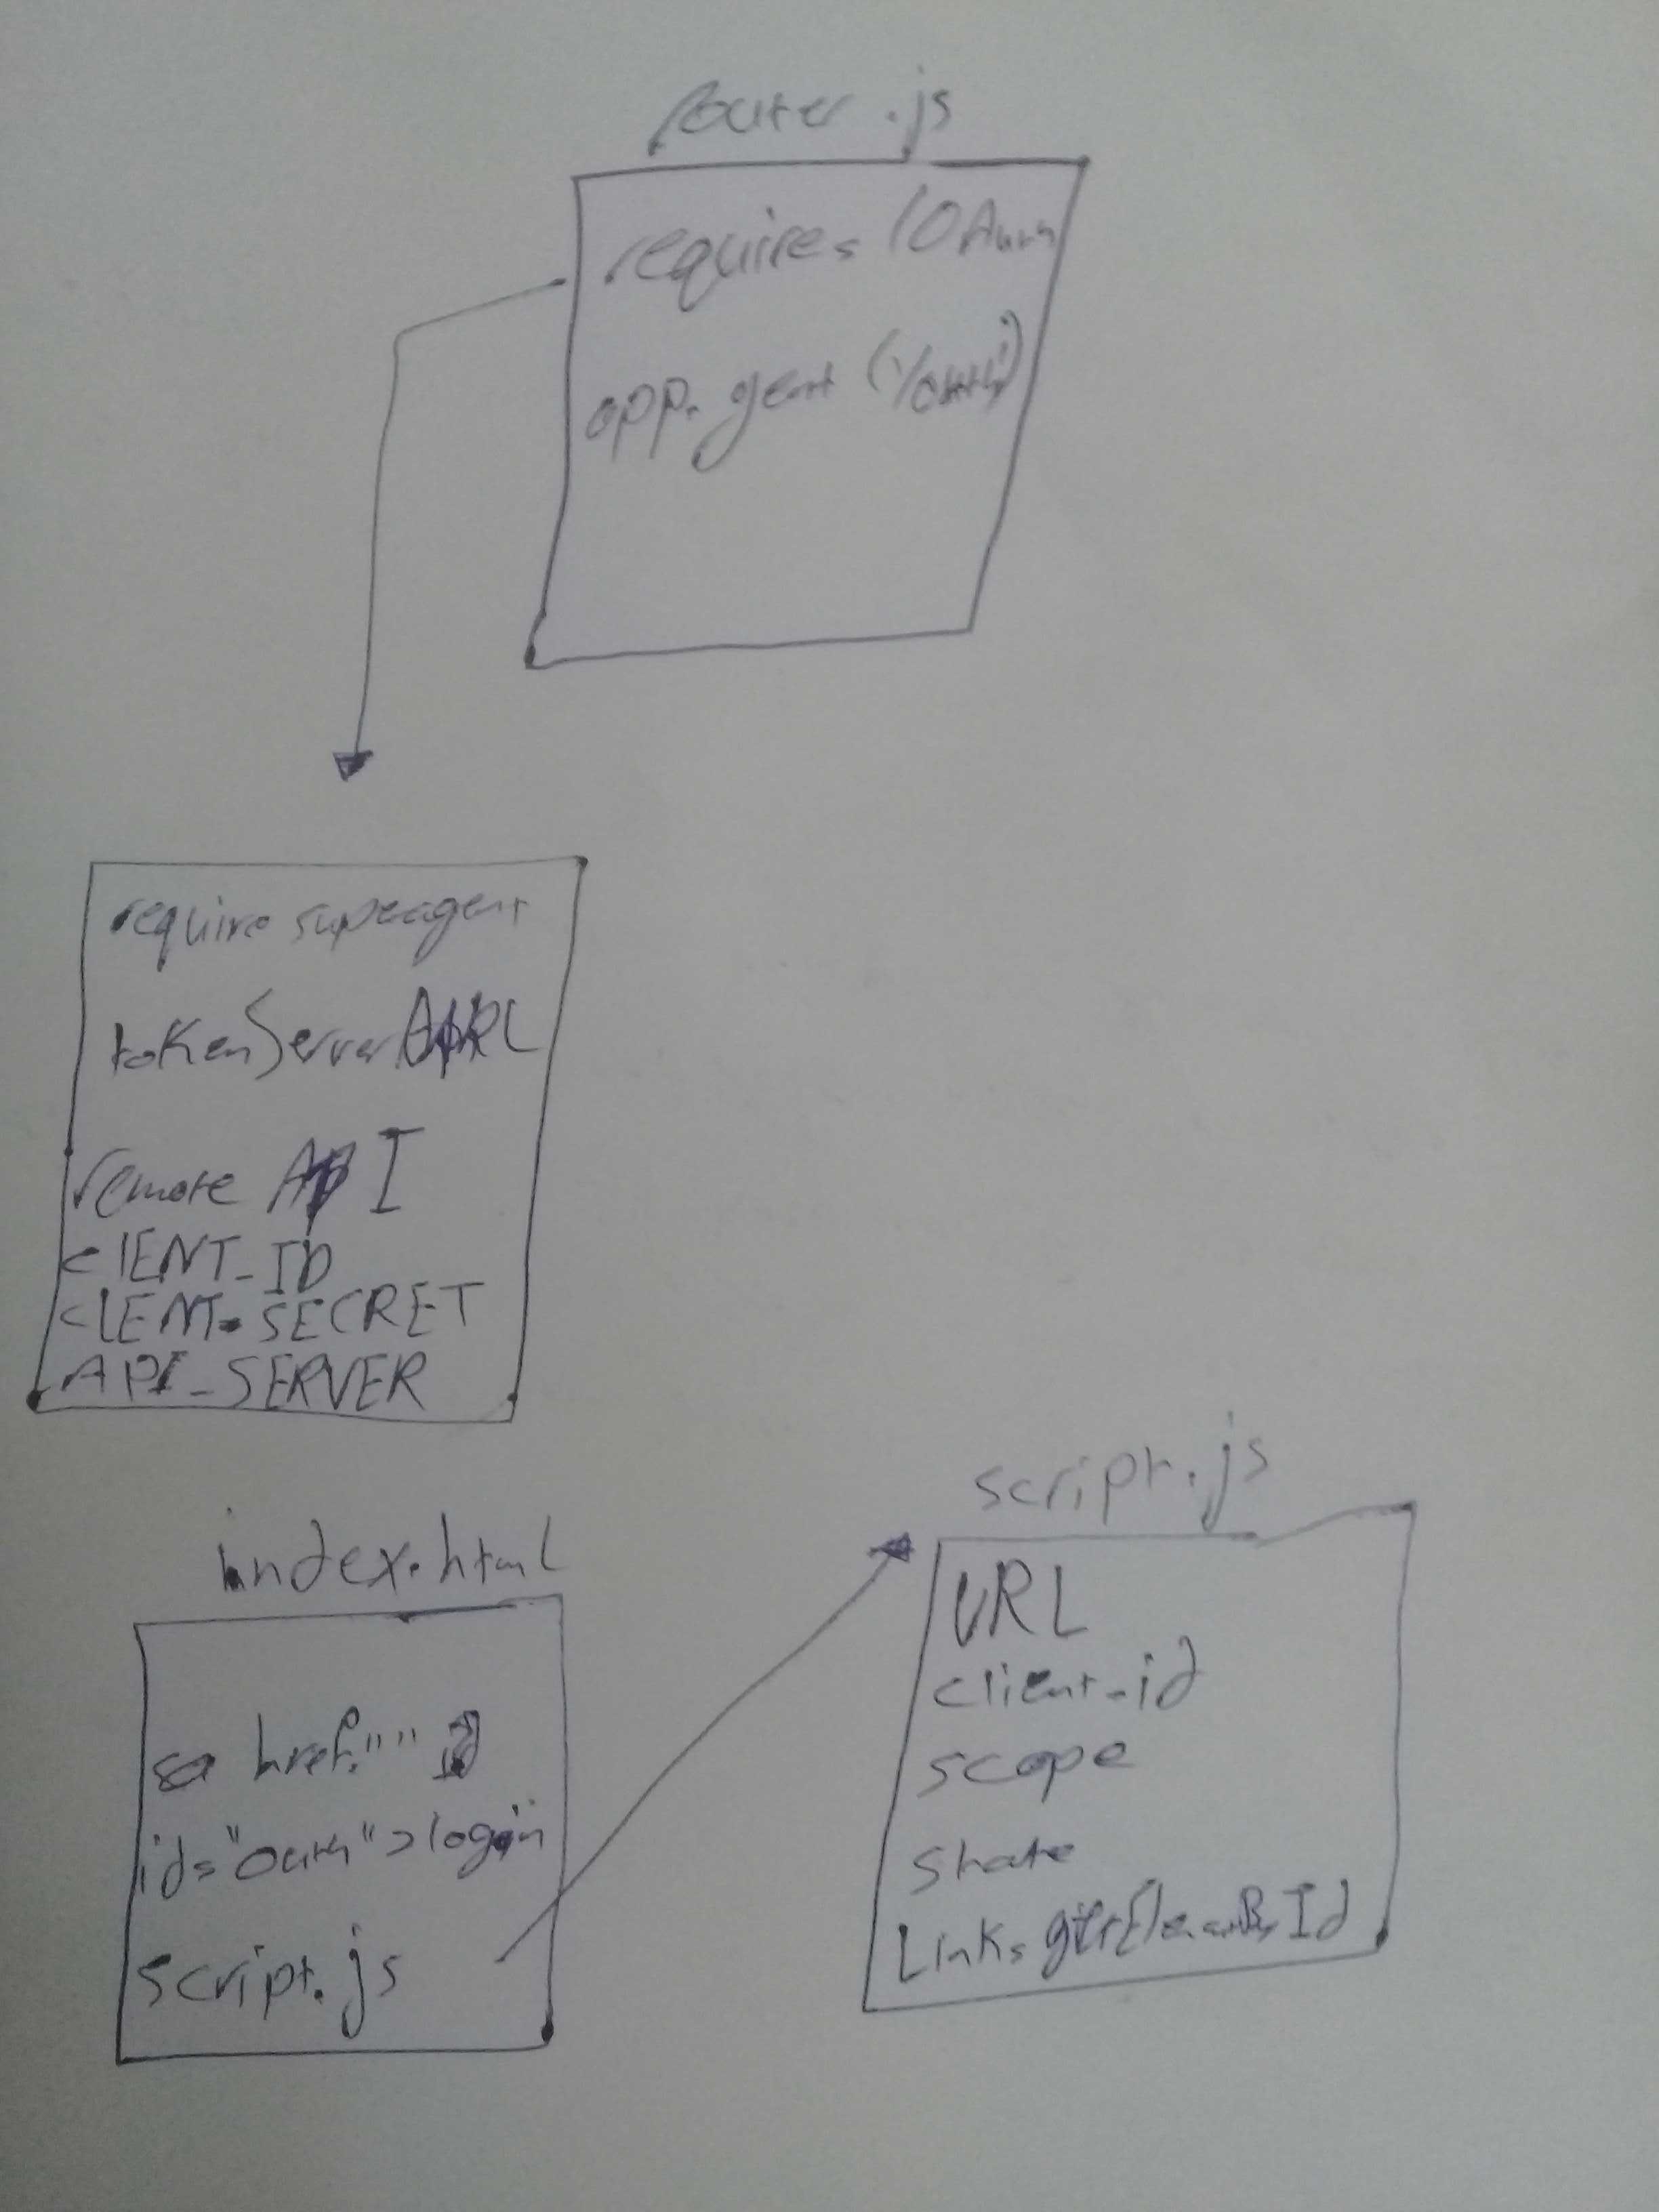 router.js
requires /OAuth
app. gent ('/oauth')
require supeagent
tokenServer URL
remote API
CLIENT_ID
CLIENT_SECRET
API_SERVER
index.html
href="" id
id="outh">login
script.js
script.js
URL
client_id
scope
state
Link, getElemenById